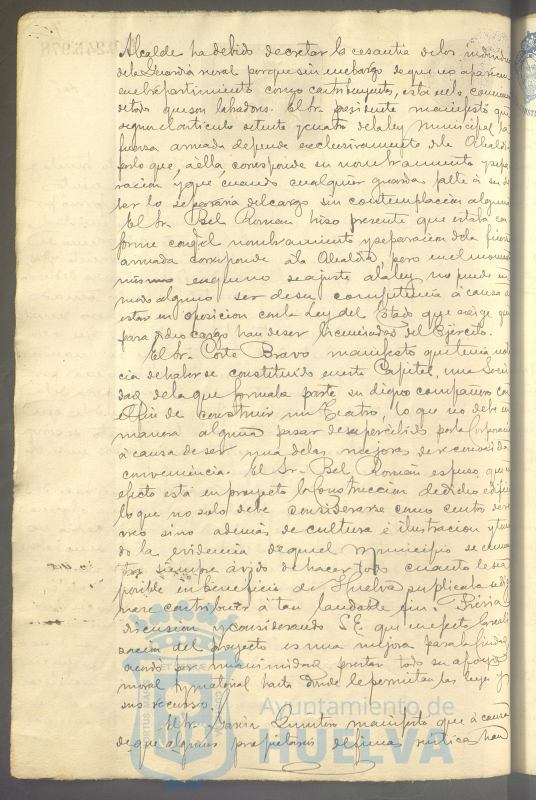 Alcalde ha debido decretar la cesantia de los individuos
de la Guardia rural porque sin embargo de que no aparecen
en el repartimiento como contribuyentes, esta en la conciencia
de todos que son labradores. El Sr. presidente manifestó que
segun el articulo setenta y cuatro de la ley Municipal la
fuerza armada depende exclusivamente de la Alcaldia
por lo que, á ella, corresponde su nombramiento y sepa-
racion y que cuando cualquier guarda falte á su de-
ber lo separaria del cargo sin contemplacion alguna
El Sr. Bel Roman hizo presente que estaba con-
forme con q. el nombramiento y separacion de la fuerza
armada corresponde á la Alcaldia, pero en el momento
mismo en que no se ajuste á la ley no puede en
modo alguno ser de su competencia á causa de
estar en oposicion con la Ley del Estado que exige que
para dicho cargo han de ser licenciados del Ejército.
El Sr. Corte Bravo manifestó que tenia noti-
cia de haberse constituido en esta Capital, una Socie-
dad de la que formaba parte su digno compañero con
el fin de construir un Teatro, lo que no debe en
manera alguna pasar desapercibido por la Corporacion
á causa de ser una de las mejoras de reconocida
conveniencia. El Sr. Bel Román expuso que en
efecto está en proyecto la construccion de dicho edificio
lo que no solo debe considerarse como centro de re-
creo sino además de cultura é ilustracion y tenien-
do la evidencia de que el Municipio se demues-
tra siempre ávido de hacer todo cuanto le sea
posible en beneficio de Huelva suplicaba se dig-
nara contribuir á tan laudable fin. Prévia
discusion y considerando S.E. que en efecto la reali-
zacion del proyecto es una mejora para la Ciudad,
acordó por unanimidad prestar todo su apoyo
moral y material hasta donde le permitan las leyes y
sus recursos.
El Sr. Garcia Quintero manifestó que á causa
de que algunos propietarios de fincas rústicas han
Ayuntamiento de
HUELVA